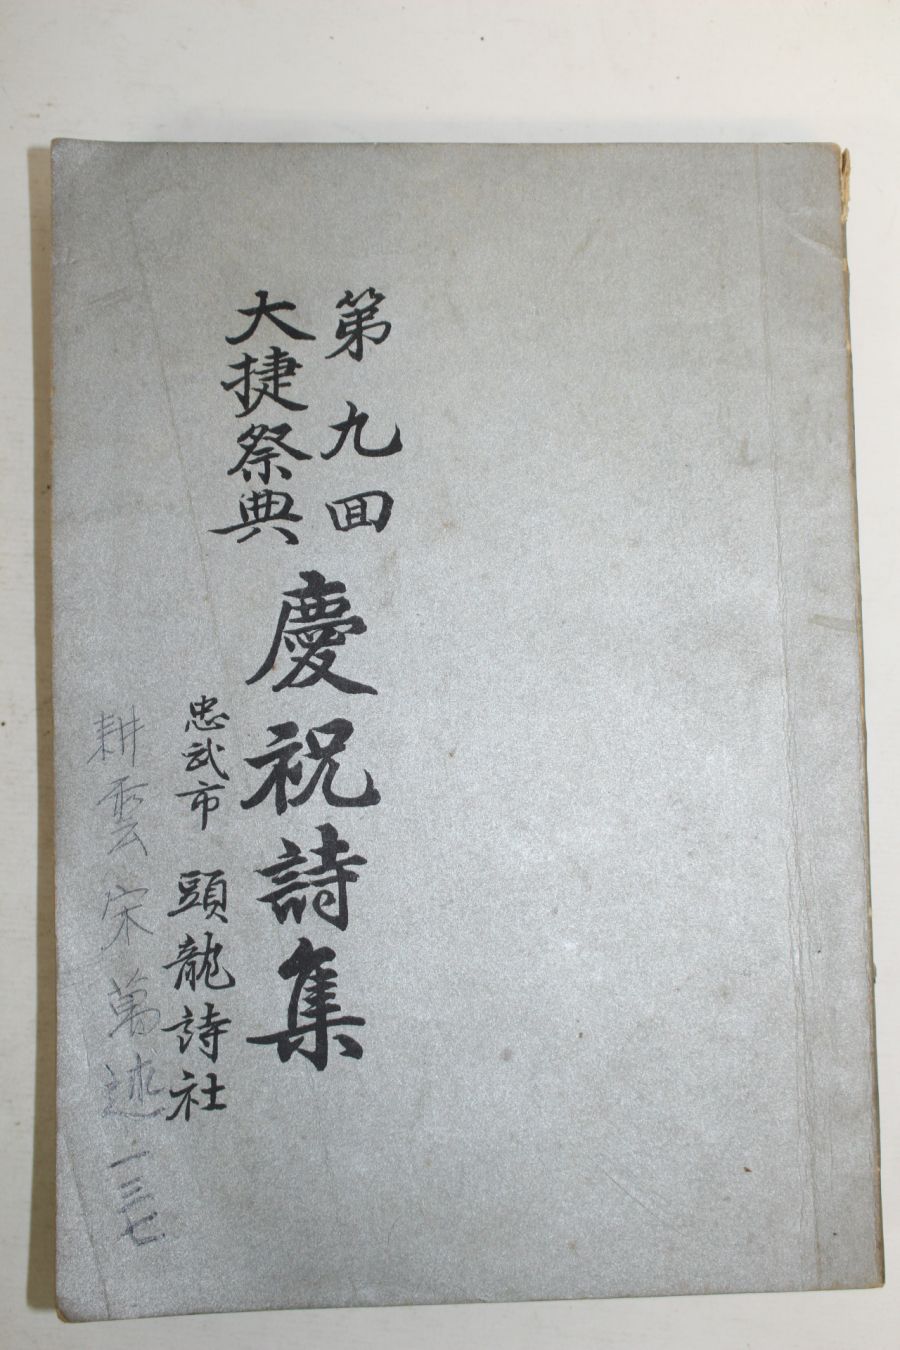 第九回
大捷祭典
慶祝詩集
忠武市 頭龍詩社
耕雲 宋萬述 一三七